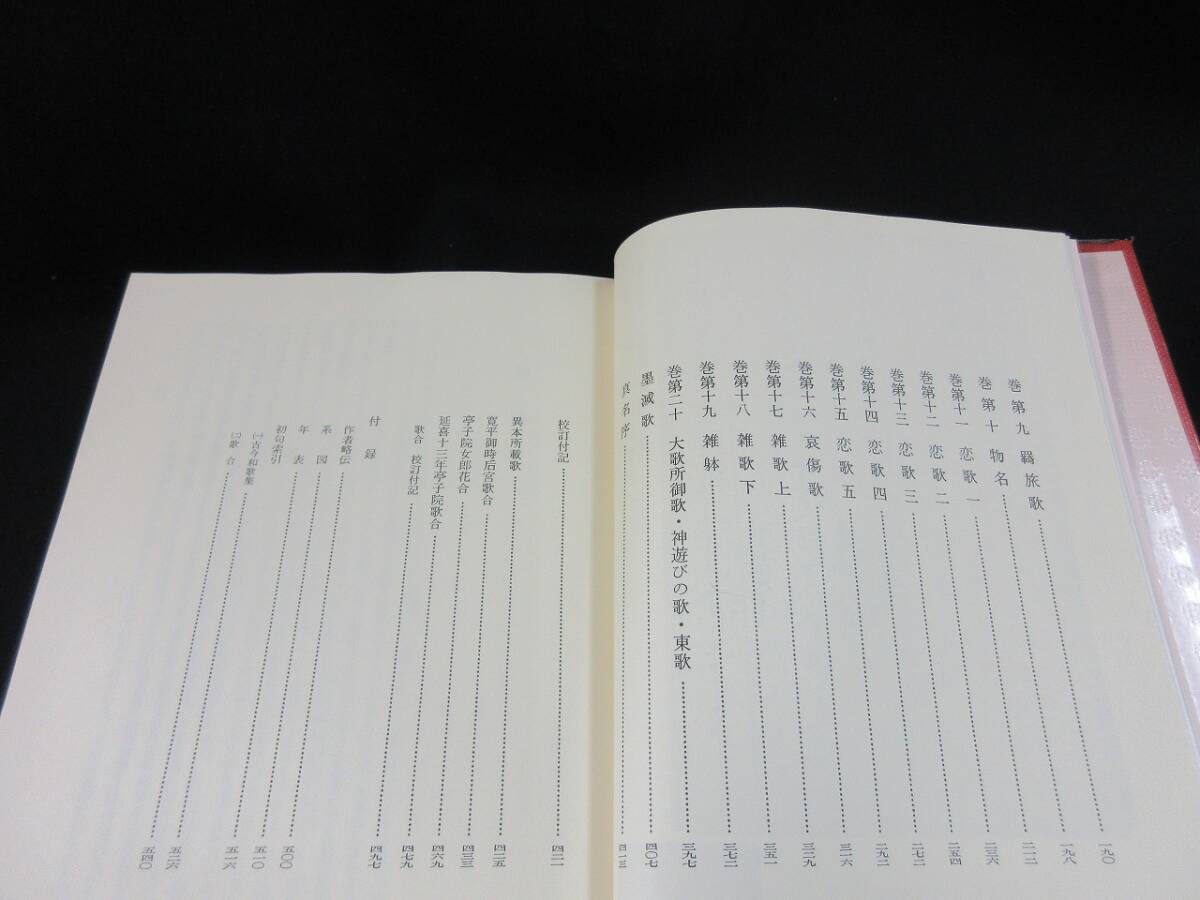 巻第九 羇旅歌……一九〇
巻第十 物名……一九八
巻第十一 恋歌一……二一二
巻第十二 恋歌二……二三六
巻第十三 恋歌三……二五四
巻第十四 恋歌四……二七二
巻第十五 恋歌五……二九二
巻第十六 哀傷歌……三一六
巻第十七 雑歌上……三二九
巻第十八 雑歌下……三五一
巻第十九 雑躰……三七二
巻第二十 大歌所御歌・神遊びの歌・東歌……三九七
墨滅歌……四〇七
真名序……四一三
校訂付記……四二一
異本所載歌……四二五
寛平御時后宮歌合……四三三
亭子院女郎花合……四六九
延喜十三年亭子院歌合……四七九
歌合 校訂付記……四九七
付録
作者略伝……五〇〇
系図……五一〇
年表……五一六
初句索引
㈠古今和歌集……五二六
㈡歌合……五四〇